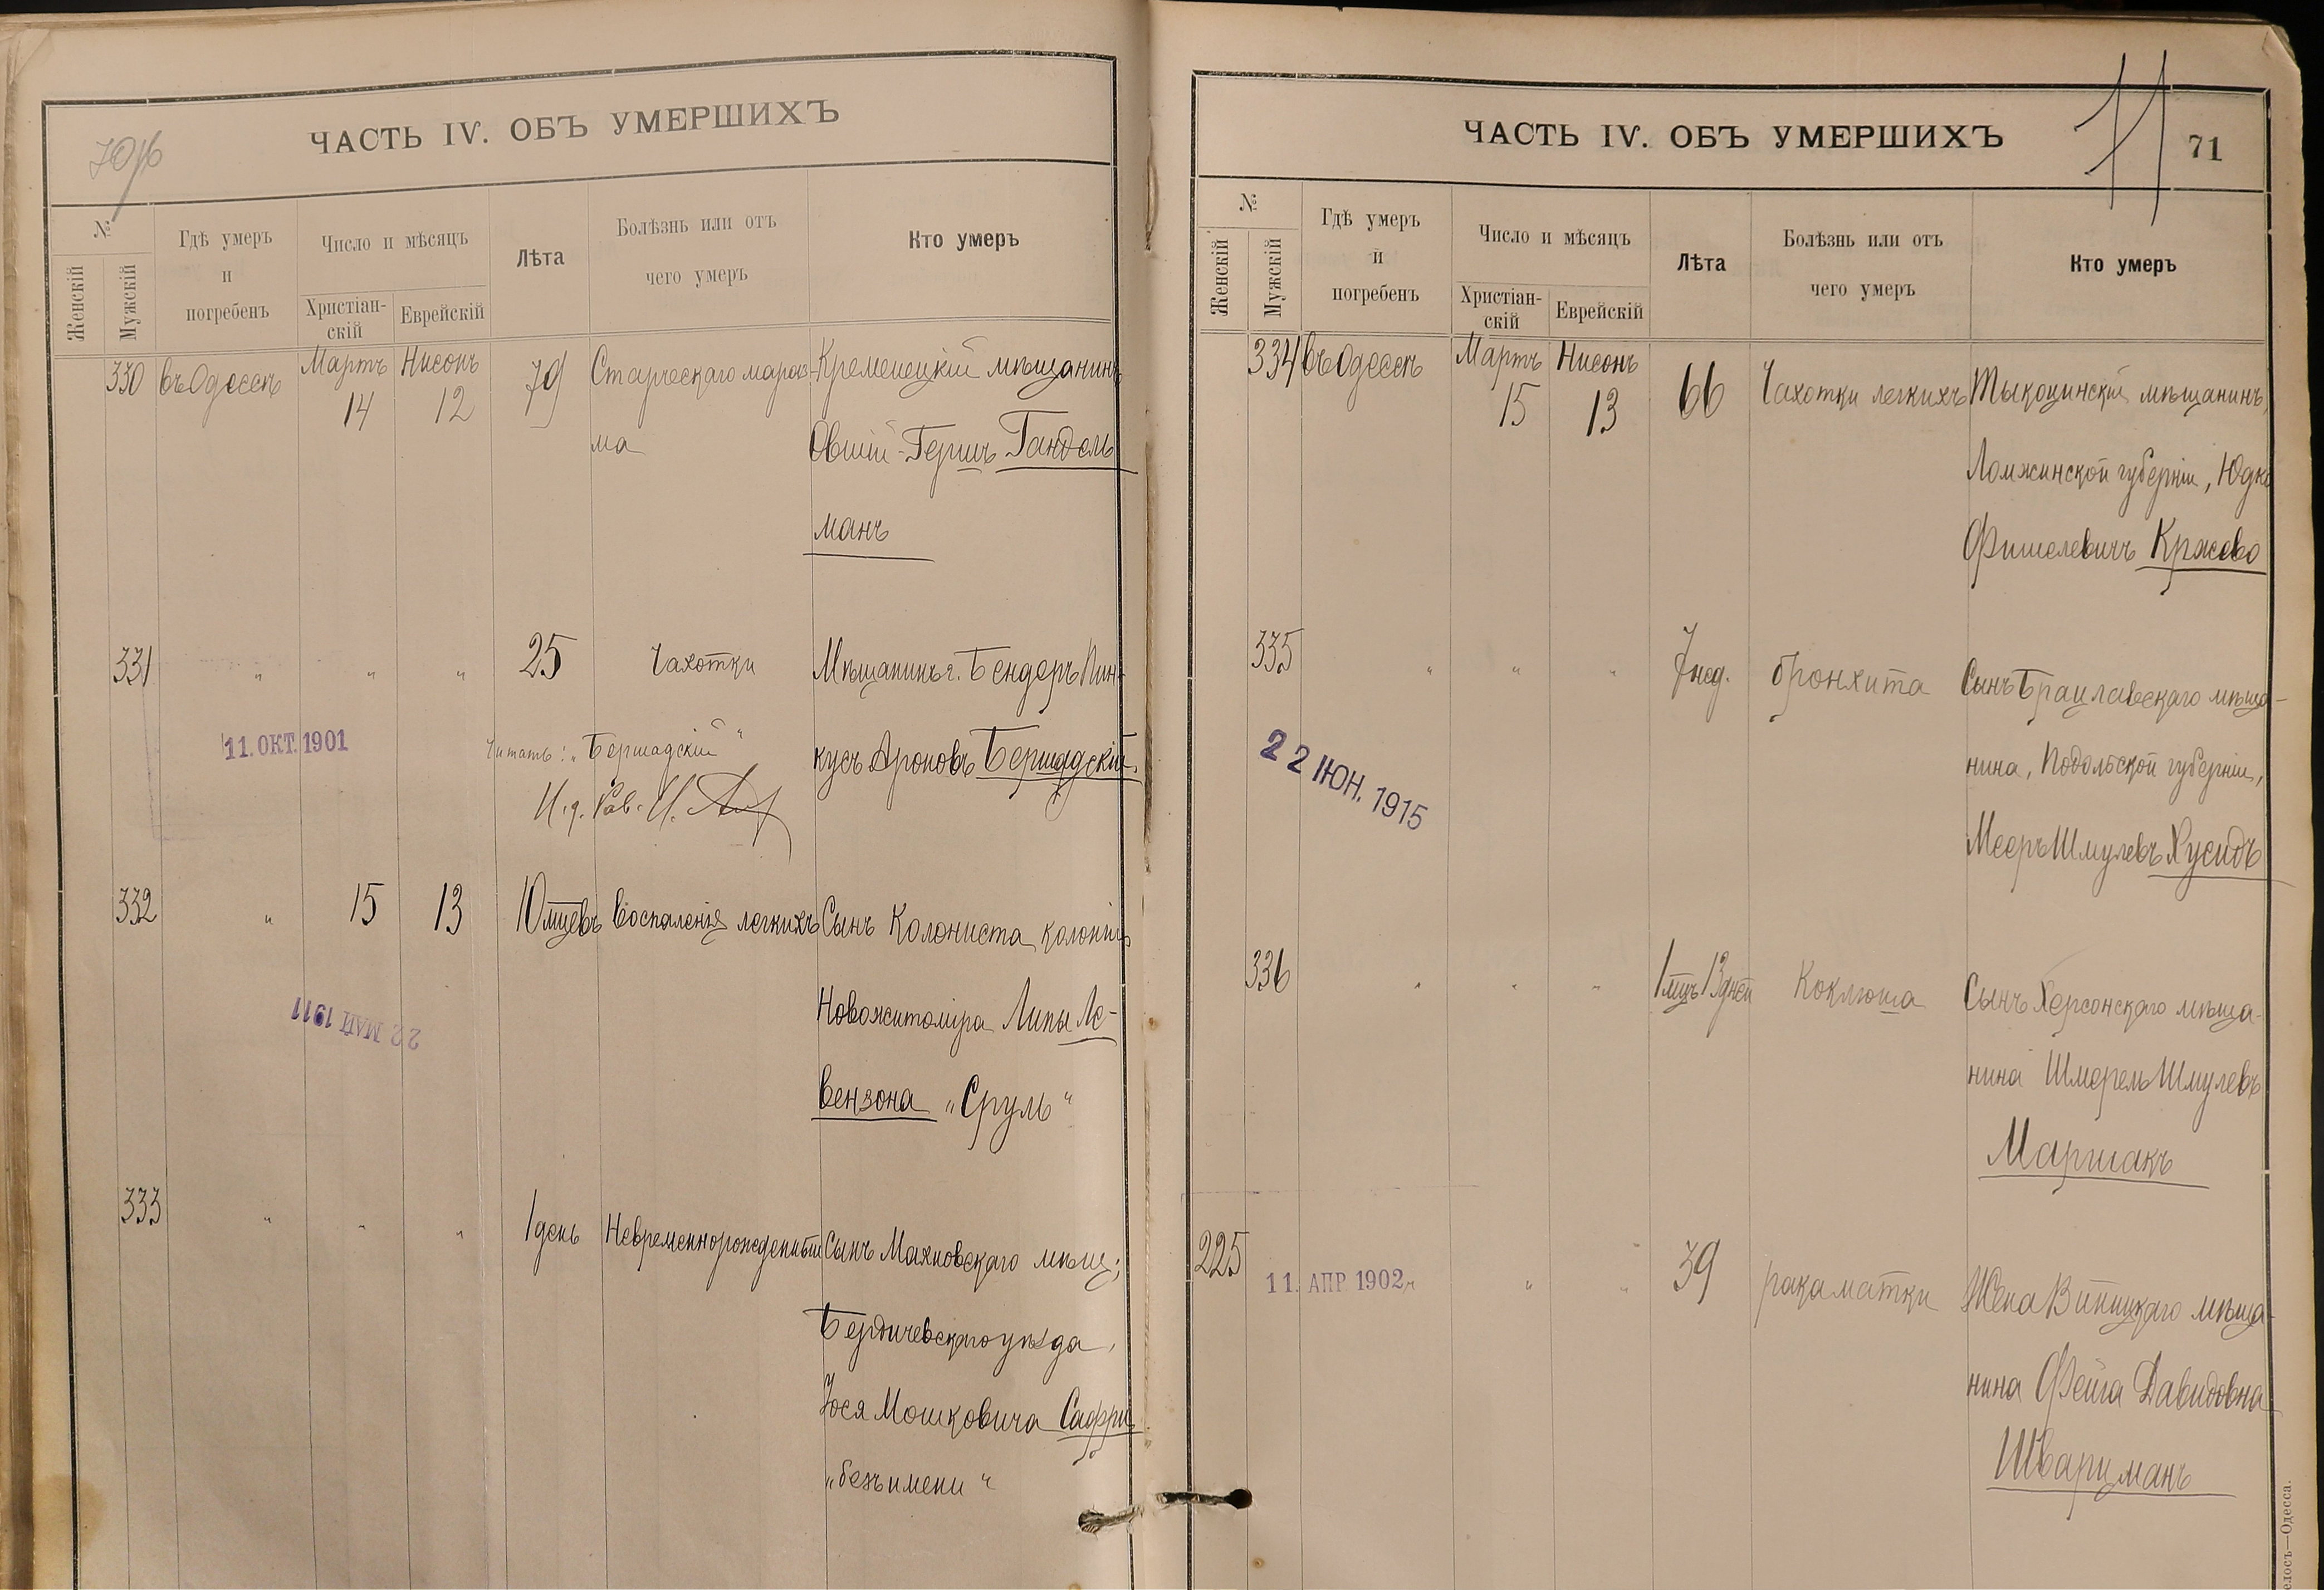 70об
ЧАСТЬ IV. ОБЪ УМЕРШИХЪ
№
Женскій
Мужскій
Гдѣ умеръ
и
погребенъ
Число и мѣсяцъ
Христіан-
скій
Еврейскій
Лѣта
Болѣзнь или отъ
чего умеръ
Кто умеръ
330 въ Одессѣ Мартъ 14 Нисонъ 12 79 Старческаго мараз-
ма
Кременецкій мѣщанинъ
Овшій-Гершъ Гандель
манъ
331 " " " 25 Чахотки Мѣщанинъ г. Бендеръ Пин-
кусъ Ароновъ Бершадскій
11. ОКТ. 1901
Читать: "Бершадскій"
И. д. Рав. И.
332 " 15 13 10 мцевъ Воспаленія легкихъ Сынъ колониста колоніи
Новожитоміра Липы Ле-
вензона "Сруль"
22 МАЙ 1911
333 " " " 1 день Невременнорожденный Сынъ Махновскаго мѣщ;
Бердичевскаго уѣзда,
Іося Мошковича Сафри
"безъ имени"
ЧАСТЬ IV. ОБЪ УМЕРШИХЪ
71
71
№
Женскій
Мужскій
Гдѣ умеръ
и
погребенъ
Число и мѣсяцъ
Христіан-
скій
Еврейскій
Лѣта
Болѣзнь или отъ
чего умеръ
Кто умеръ
334 въ Одессѣ Мартъ 15 Нисонъ 13 66 Чахотки легкихъ Тыкоцинскій мѣщанинъ,
Ломжинской губерніи, Юдко
Фишелевичъ Кржево
335 " " " 7 нед. бронхита Сынъ Брацлавскаго мѣща-
нина, Подольской губерніи,
Мееръ Шмулевъ Хусидъ
22 ІЮН. 1915
336 " " " 1 мцъ 13 дней Коклюша Сынъ Херсонскаго мѣща-
нина Шмерель Шмулевъ
Маршакъ
225 " " 39 рака матки Жена Винницкаго мѣща-
нина Фейга Давидовна
Шварцманъ
11. АПР. 1902
елосъ—Одесса.